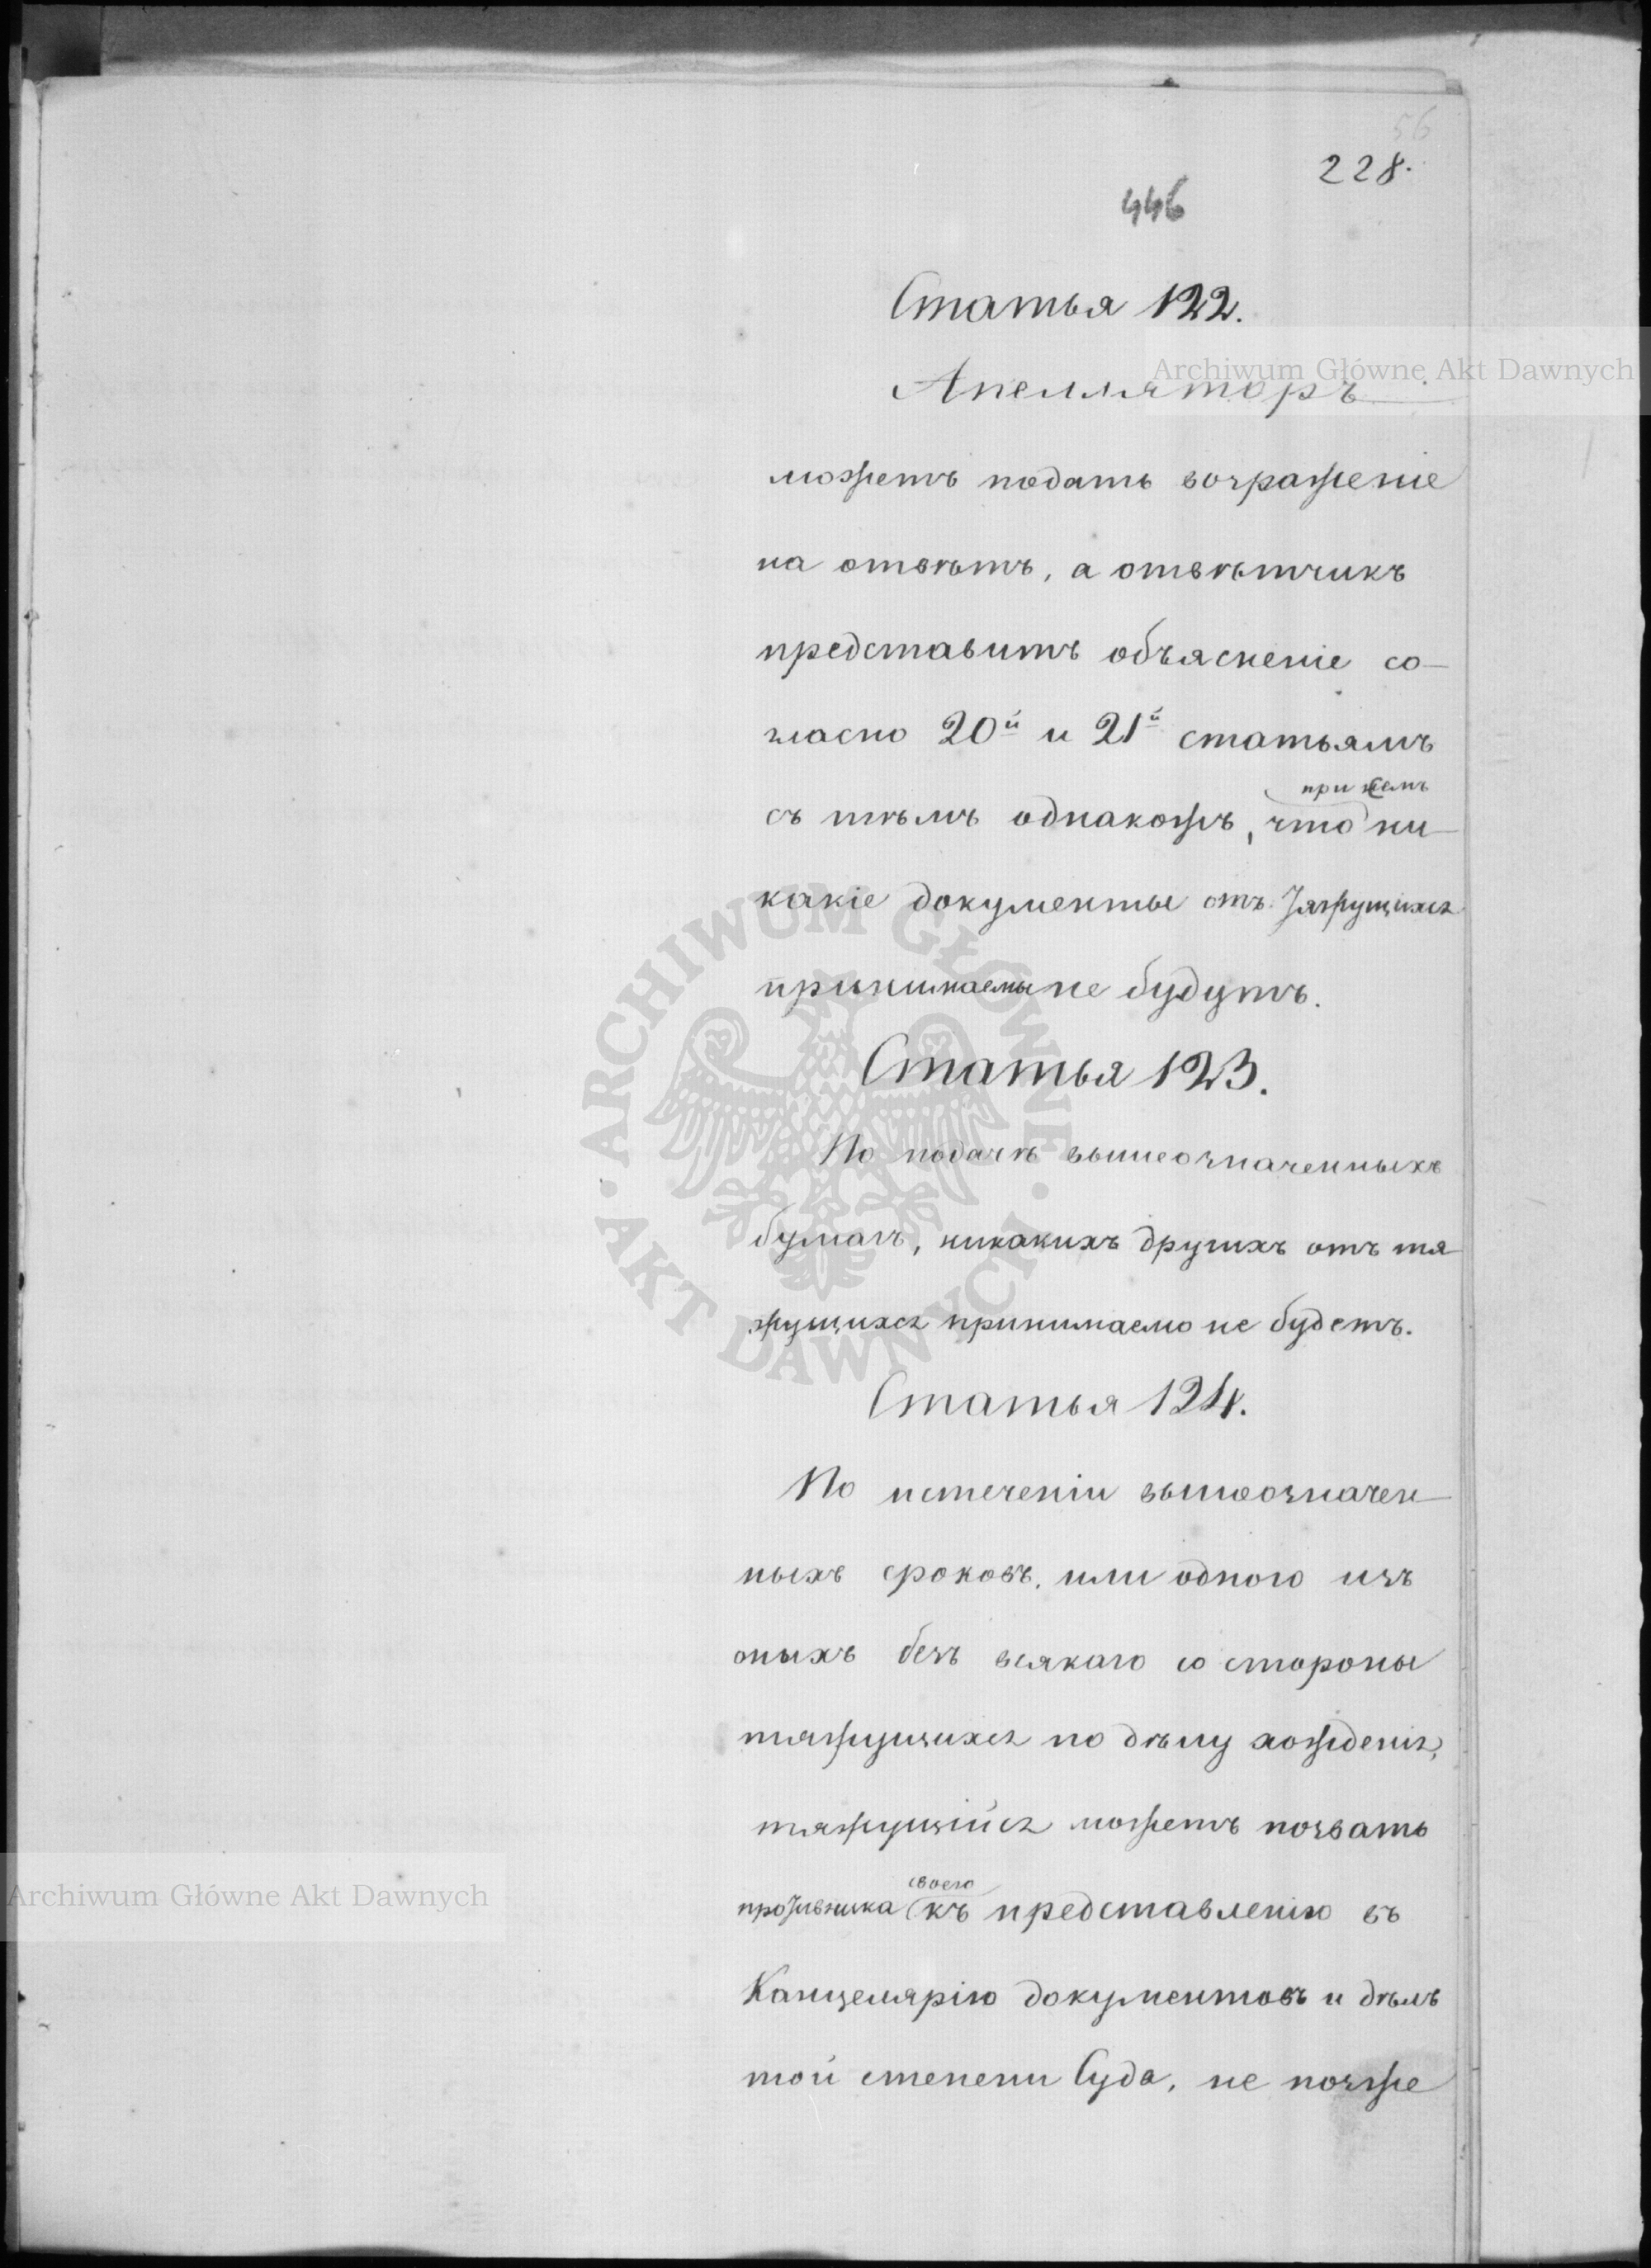 56
228.
446
Статья 122.
Апелляторъ
можетъ подать возраженіе
на отвѣтъ, а отвѣтчикъ
представить объясненіе со-
гласно 20й и 21й статьямъ
при чемъ
съ тѣмъ однакожъ, что ни-
какіе документы отъ тяжущихся
принимаемы не будутъ.
Статья 123.
По подачѣ вышеозначенныхъ
бумагъ, никакихъ другихъ отъ тя-
жущихся принимаемо не будетъ.
Статья 124.
По истеченіи вышеозначен-
ныхъ сроковъ, или одного изъ
оныхъ безъ всякаго со стороны
тяжущихся по дѣлу хожденія,
тяжущійся можетъ позвать
своего
противника къ представленію въ
Канцелярію документовъ и дѣлъ
той степени Суда, не позже
Archiwum Główne Akt Dawnych
ARCHIWUM GŁÓWNE · AKT DAWNYCH ·
Archiwum Główne Akt Dawnych